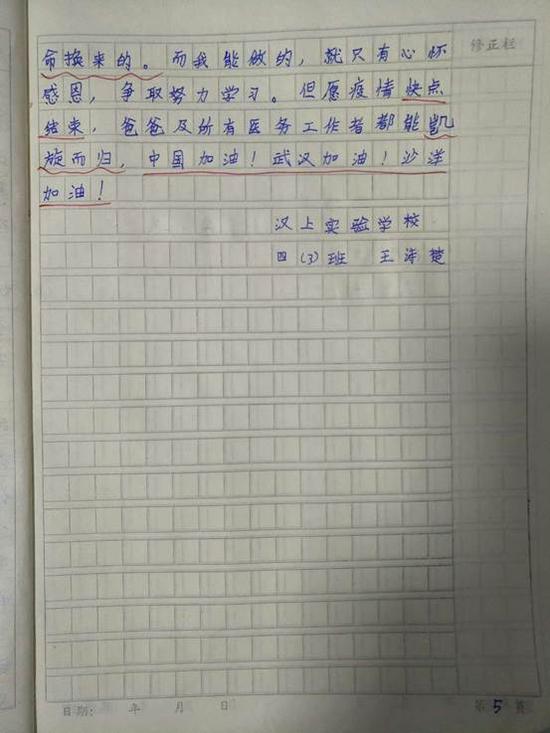 修正栏
命换来的。而我能做的，就只有心怀
感恩，争取努力学习。但愿疫情快点
结束，爸爸及所有医务工作者都能凯
旋而归，中国加油！武汉加油！沙洋
加油！
汉上实验学校
四（3）班 王涛楚
日期： 年 月 日
第5页